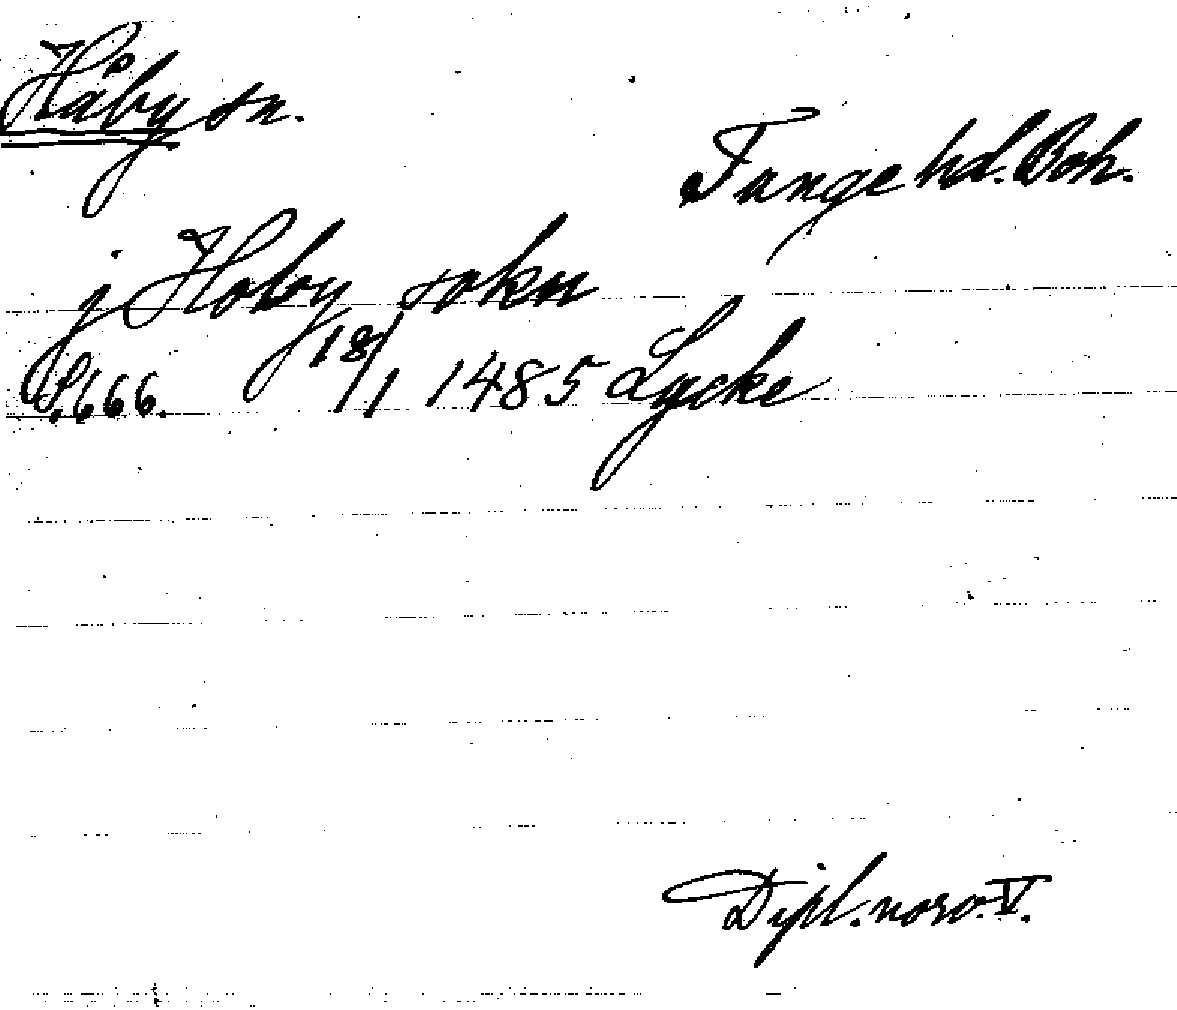 Håby sn.
Tunge hd. Boh.
j Hoby sokn
S. 666. 18/1 1485 Lycke
Dipl. norv. V.